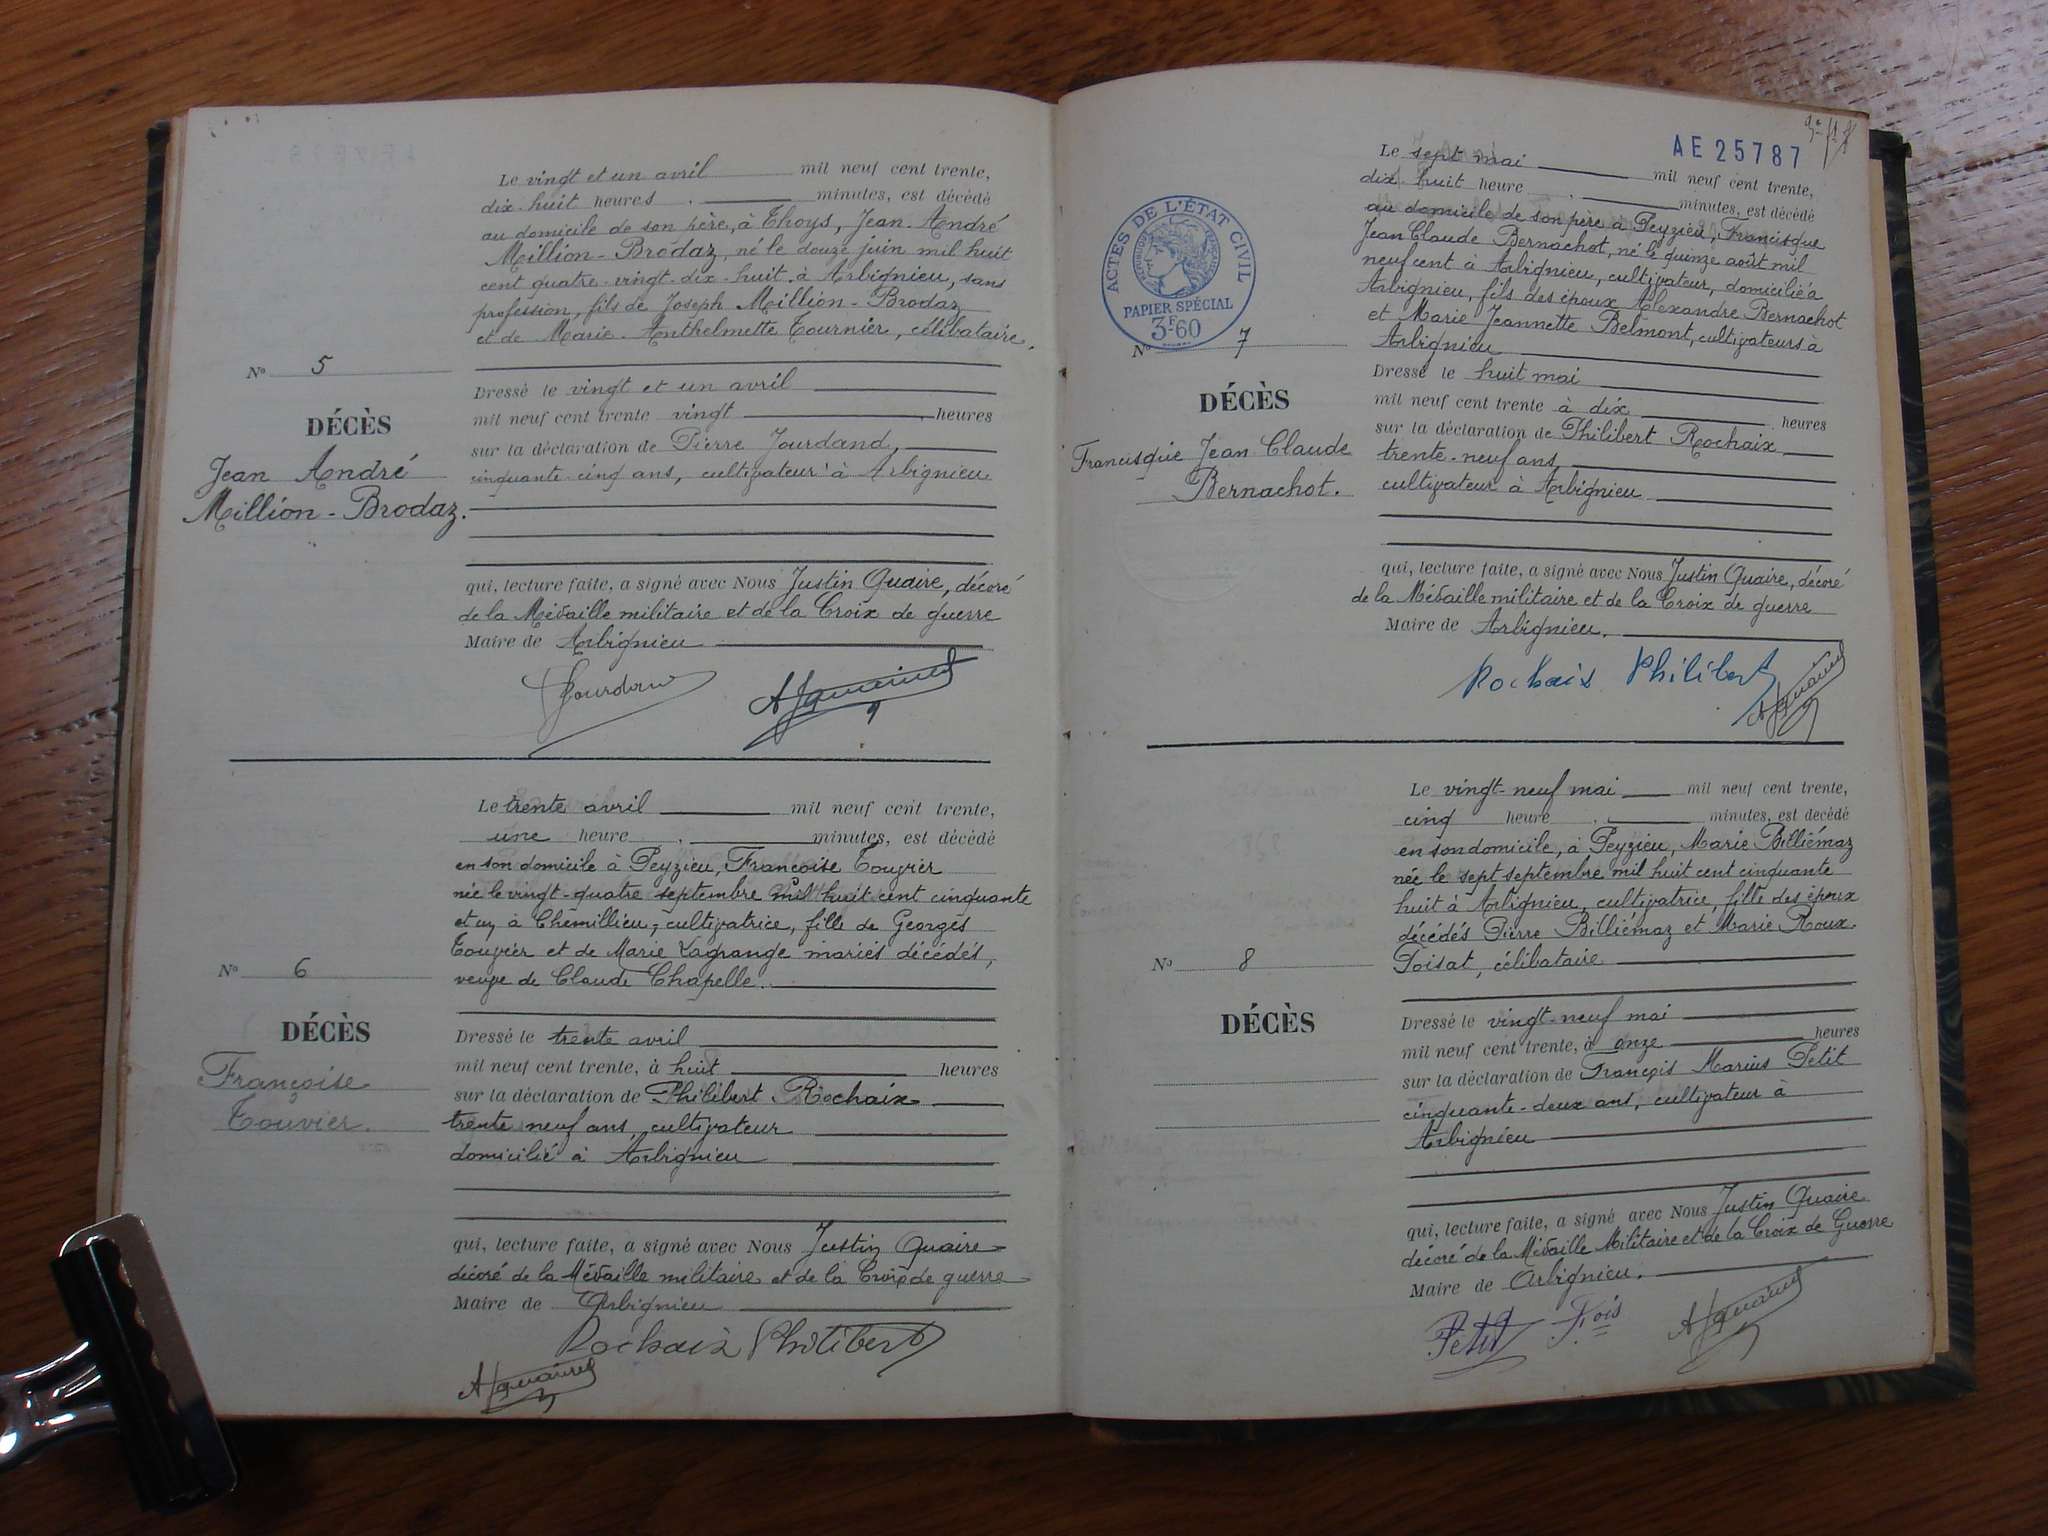 Le vingt et un avril mil neuf cent trente,
dix-huit heures . minutes, est décédé
au domicile de son père, à Thoys, Jean-André
Million-Brodaz, né le douze juin mil huit
cent quatre-vingt-dix-huit à Arbignieu, sans
profession, fils de Joseph Million-Brodaz
et de Marie-Anthelmette Tournier, célibataire.
No 5
DÉCÈS
Jean André
Million-Brodaz.
Dressé le vingt et un avril
mil neuf cent trente vingt heures
sur la déclaration de Pierre Jourdand,
cinquante-cinq ans, cultivateur à Arbignieu
qui, lecture faite, a signé avec Nous Justin Quaire, décoré
de la Médaille militaire et de la Croix de guerre
Maire de Arbignieu
Le trente avril mil neuf cent trente,
une heure . minutes, est décédé
en son domicile à Peyzieu, Françoise Touvier
née le vingt-quatre septembre mil huit cent cinquante
et un à Chemillieu, cultivatrice, fille de Georges
Touvier et de Marie Lagrange mariés décédés,
veuve de Claude Chapelle.
No 6
DÉCÈS
Françoise
Touvier.
Dressé le trente avril
mil neuf cent trente, à huit heures
sur la déclaration de Philibert Rochaix
trente neuf ans, cultivateur
domicilié à Arbignieu
qui, lecture faite, a signé avec Nous Justin Quaire
décoré de la Médaille militaire et de la Croix de guerre
Maire de Arbignieu
Rochaix Philibert
AE 25787
ACTES DE L'ÉTAT CIVIL
RÉPUBLIQUE FRANÇAISE
PAPIER SPÉCIAL
3F60
Le sept mai mil neuf cent trente,
dix-huit heure . minutes, est décédé
au domicile de son père à Peyzieu, Francisque
Jean Claude Bernachot, né le quinze août mil
neuf cent à Arbignieu, cultivateur, domicilié à
Arbignieu, fils des époux Alexandre Bernachot
et Marie Jeannette Belmont, cultivateurs à
Arbignieu
No 7
DÉCÈS
Francisque Jean Claude
Bernachot.
Dressé le huit mai
mil neuf cent trente à dix heures
sur la déclaration de Philibert Rochaix
trente-neuf ans
cultivateur à Arbignieu
qui, lecture faite, a signé avec Nous Justin Quaire, décoré
de la Médaille militaire et de la Croix de guerre
Maire de Arbignieu.
Rochaix Philibert
Le vingt-neuf mai mil neuf cent trente,
cinq heure . minutes, est décédé
en son domicile, à Peyzieu, Marie Billiémaz
née le sept septembre mil huit cent cinquante
huit à Arbignieu, cultivatrice, fille des époux
décédés Pierre Billiémaz et Marie Roux-
Poisat, célibataire
No 8
DÉCÈS
Dressé le vingt-neuf mai
mil neuf cent trente, à onze heures
sur la déclaration de François Marius Petit
cinquante-deux ans, cultivateur à
Arbignieu
qui, lecture faite, a signé avec Nous Justin Quaire
décoré de la Médaille Militaire et de la Croix de Guerre
Maire de Arbignieu.
Petit Fois